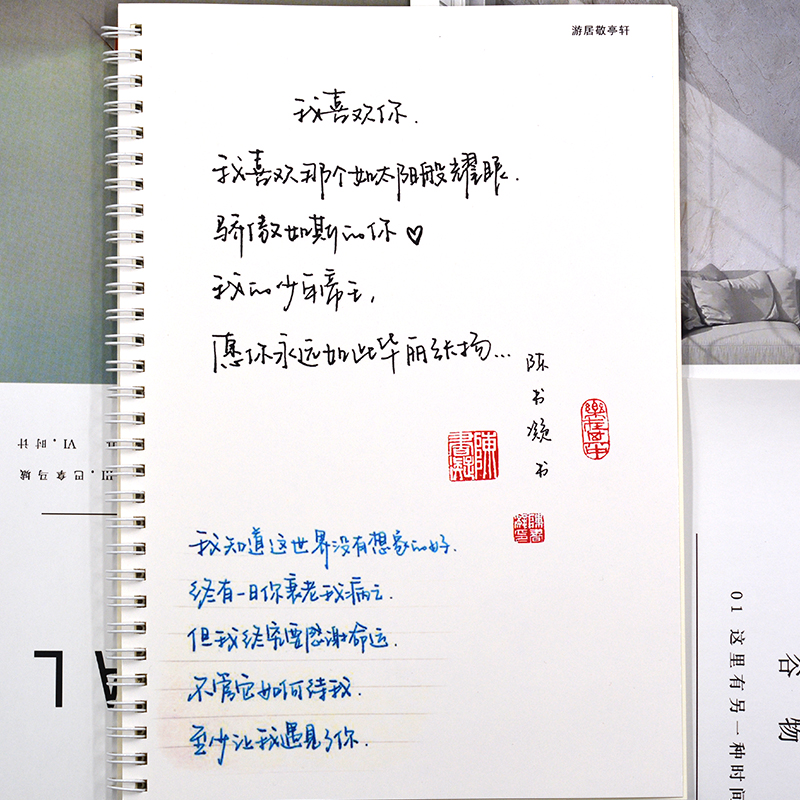 游居敬亭轩
我喜欢你.
我喜欢那个如太阳般耀眼.
骄傲如斯的你♡
我的少年帝王,
愿你永远如此华丽张扬...
陈书凝书
我知道这世界没有想象的好.
终有一日你衰老我病亡.
但我终究要感谢命运.
不管它如何待我.
至少让我遇见了你.
VI. 时计
III. 巴拿马城
AL
01 这里有另一种时间
谷物